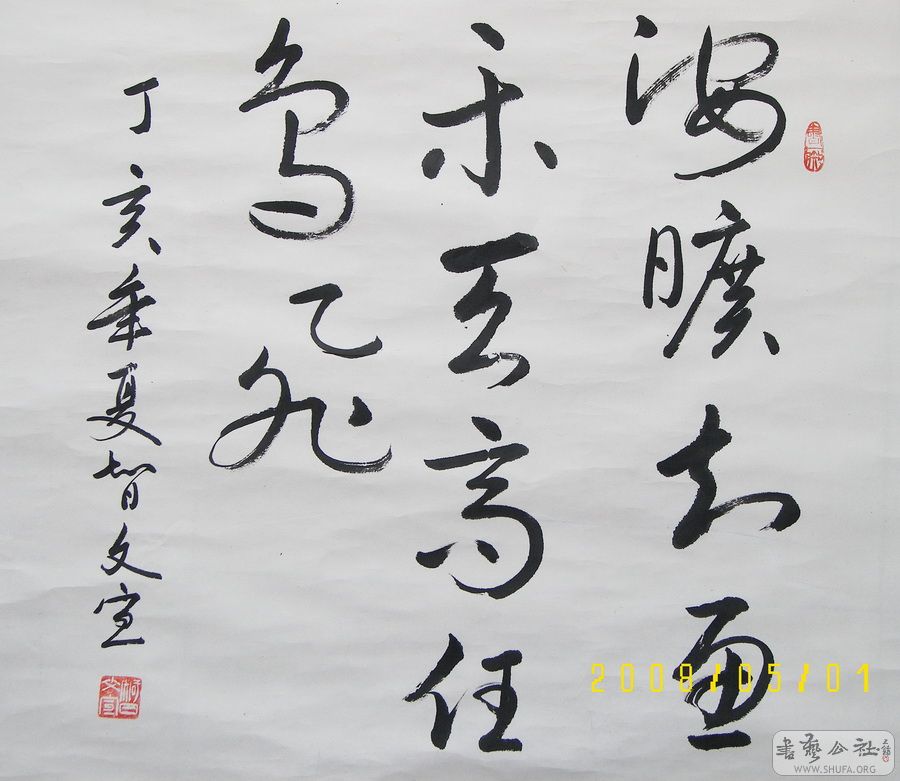 海曠知魚
樂天高任
鳥飛
丁亥年夏智文宣
2008/05/01
書藝公社
WWW.SHUFA.ORG